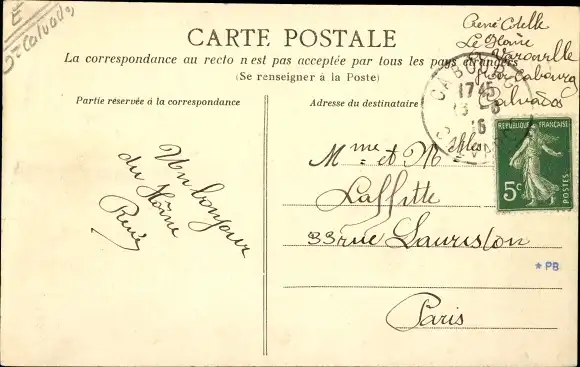 E
Calvados
CARTE POSTALE
La correspondance au recto n'est pas acceptée par tous les pays étrangers
(Se renseigner à la Poste)
Partie réservée à la correspondance
Adresse du destinataire
René
Le Hôme
Varaville
par Cabourg
Calvados
CABOURG
17 45
13 6
16
CALVADOS
REPUBLIQUE FRANÇAISE
5c
POSTES
Un bonjour
du Hôme
René
Mme et Melles
Laffitte
33 rue Lauriston
Paris
* PB